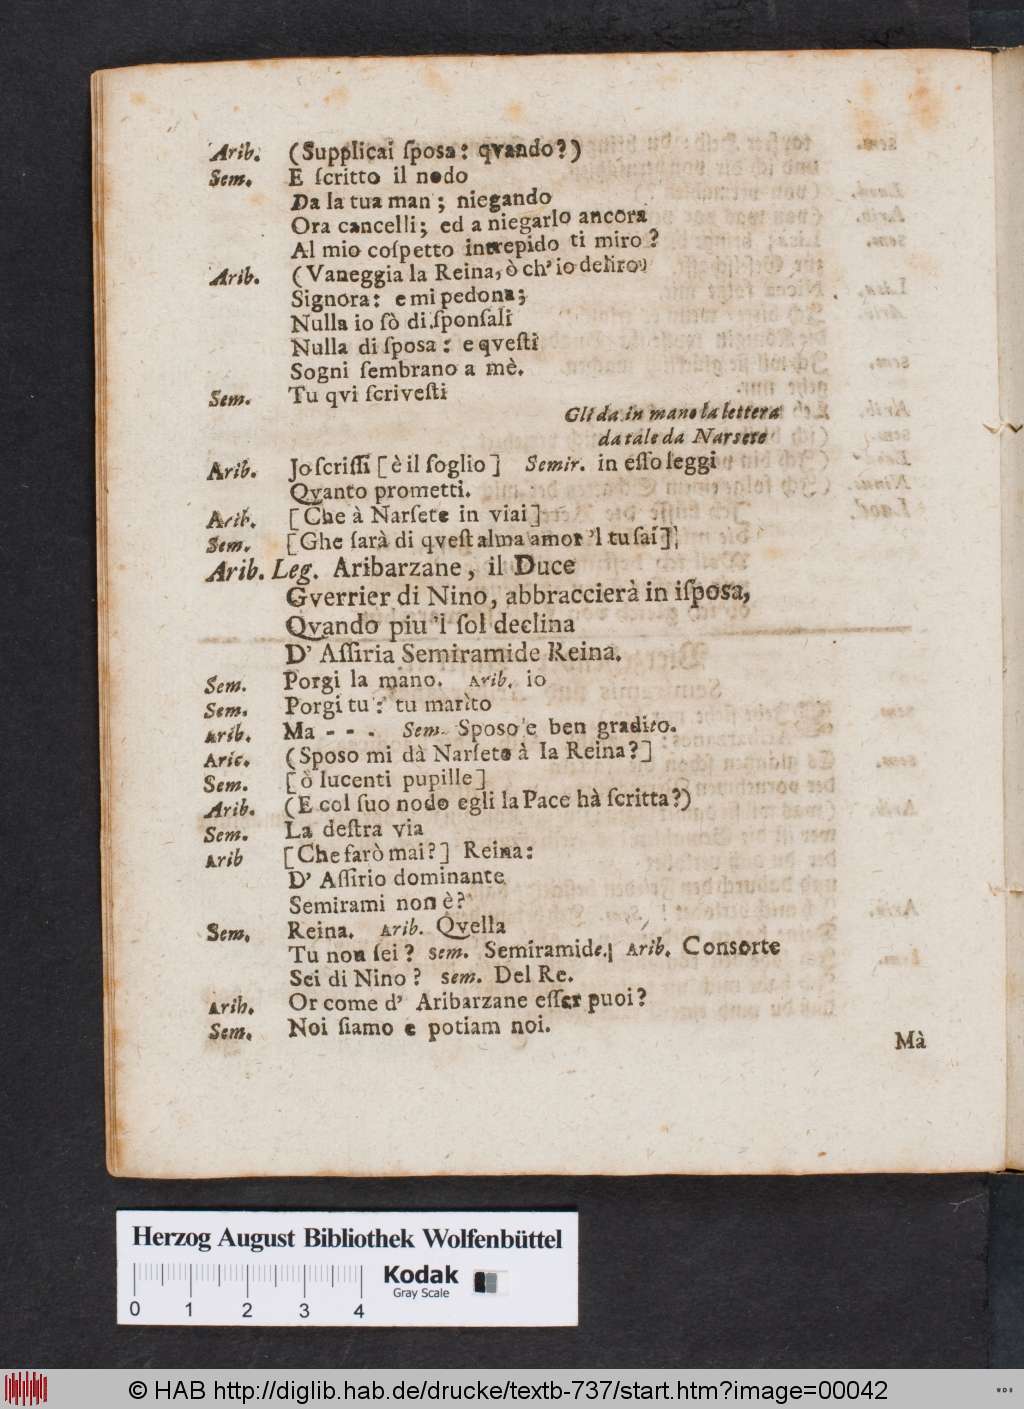 Arib. (Supplicai ſposa: qvando?)
Sem. E ſcritto il nodo
Da la tua man; niegando
Ora cancelli; ed a niegarlo ancora
Al mio coſpetto intrepido ti miro?
Arib. (Vaneggia la Reina, ò ch' io deliro)
Signora: e mi pedona;
Nulla io sò di ſponſali
Nulla di ſposa: e qveſti
Sogni ſembrano a mè.
Sem. Tu qvi ſcriveſti
Gli da in mano la lettera
datale da Narsete
Arib. Jo ſcriſſi [è il ſoglio] Semir. in eſſo leggi
Qvanto prometti.
Arib. [Che à Narſete in viai]
Sem. [Ghe ſarà di qveſt alma amor 'l tu ſai]
Arib. Leg. Aribarzane, il Duce
Gverrier di Nino, abbraccierà in iſposa,
Qvando piu 'l ſol declina
D' Aſſiria Semiramide Reina.
Sem. Porgi la mano. Arib. io
Sem. Porgi tu: tu marìto
Arib. Ma - - . Sem. Sposo e ben gradito.
Aric. (Sposo mi dà Narſete à Ia Reina?]
Sem. [ò lucenti pupille]
Arib. (E col ſuo nodo egli la Pace hà ſcritta?)
Sem. La deſtra via
Arib [Che farò mai?] Reina:
D' Aſſirio dominante
Semirami non è?
Sem. Reina. Arib. Qvella
Tu non ſei? sem. Semiramide. Arib. Consorte
Sei di Nino? sem. Del Re.
Arih. Or come d' Aribarzane eſſer puoi?
Sem. Noi ſiamo e potiam noi.
Mà
Herzog August Bibliothek Wolfenbüttel
0 1 2 3 4
Kodak
Gray Scale
© HAB http://diglib.hab.de/drucke/textb-737/start.htm?image=00042